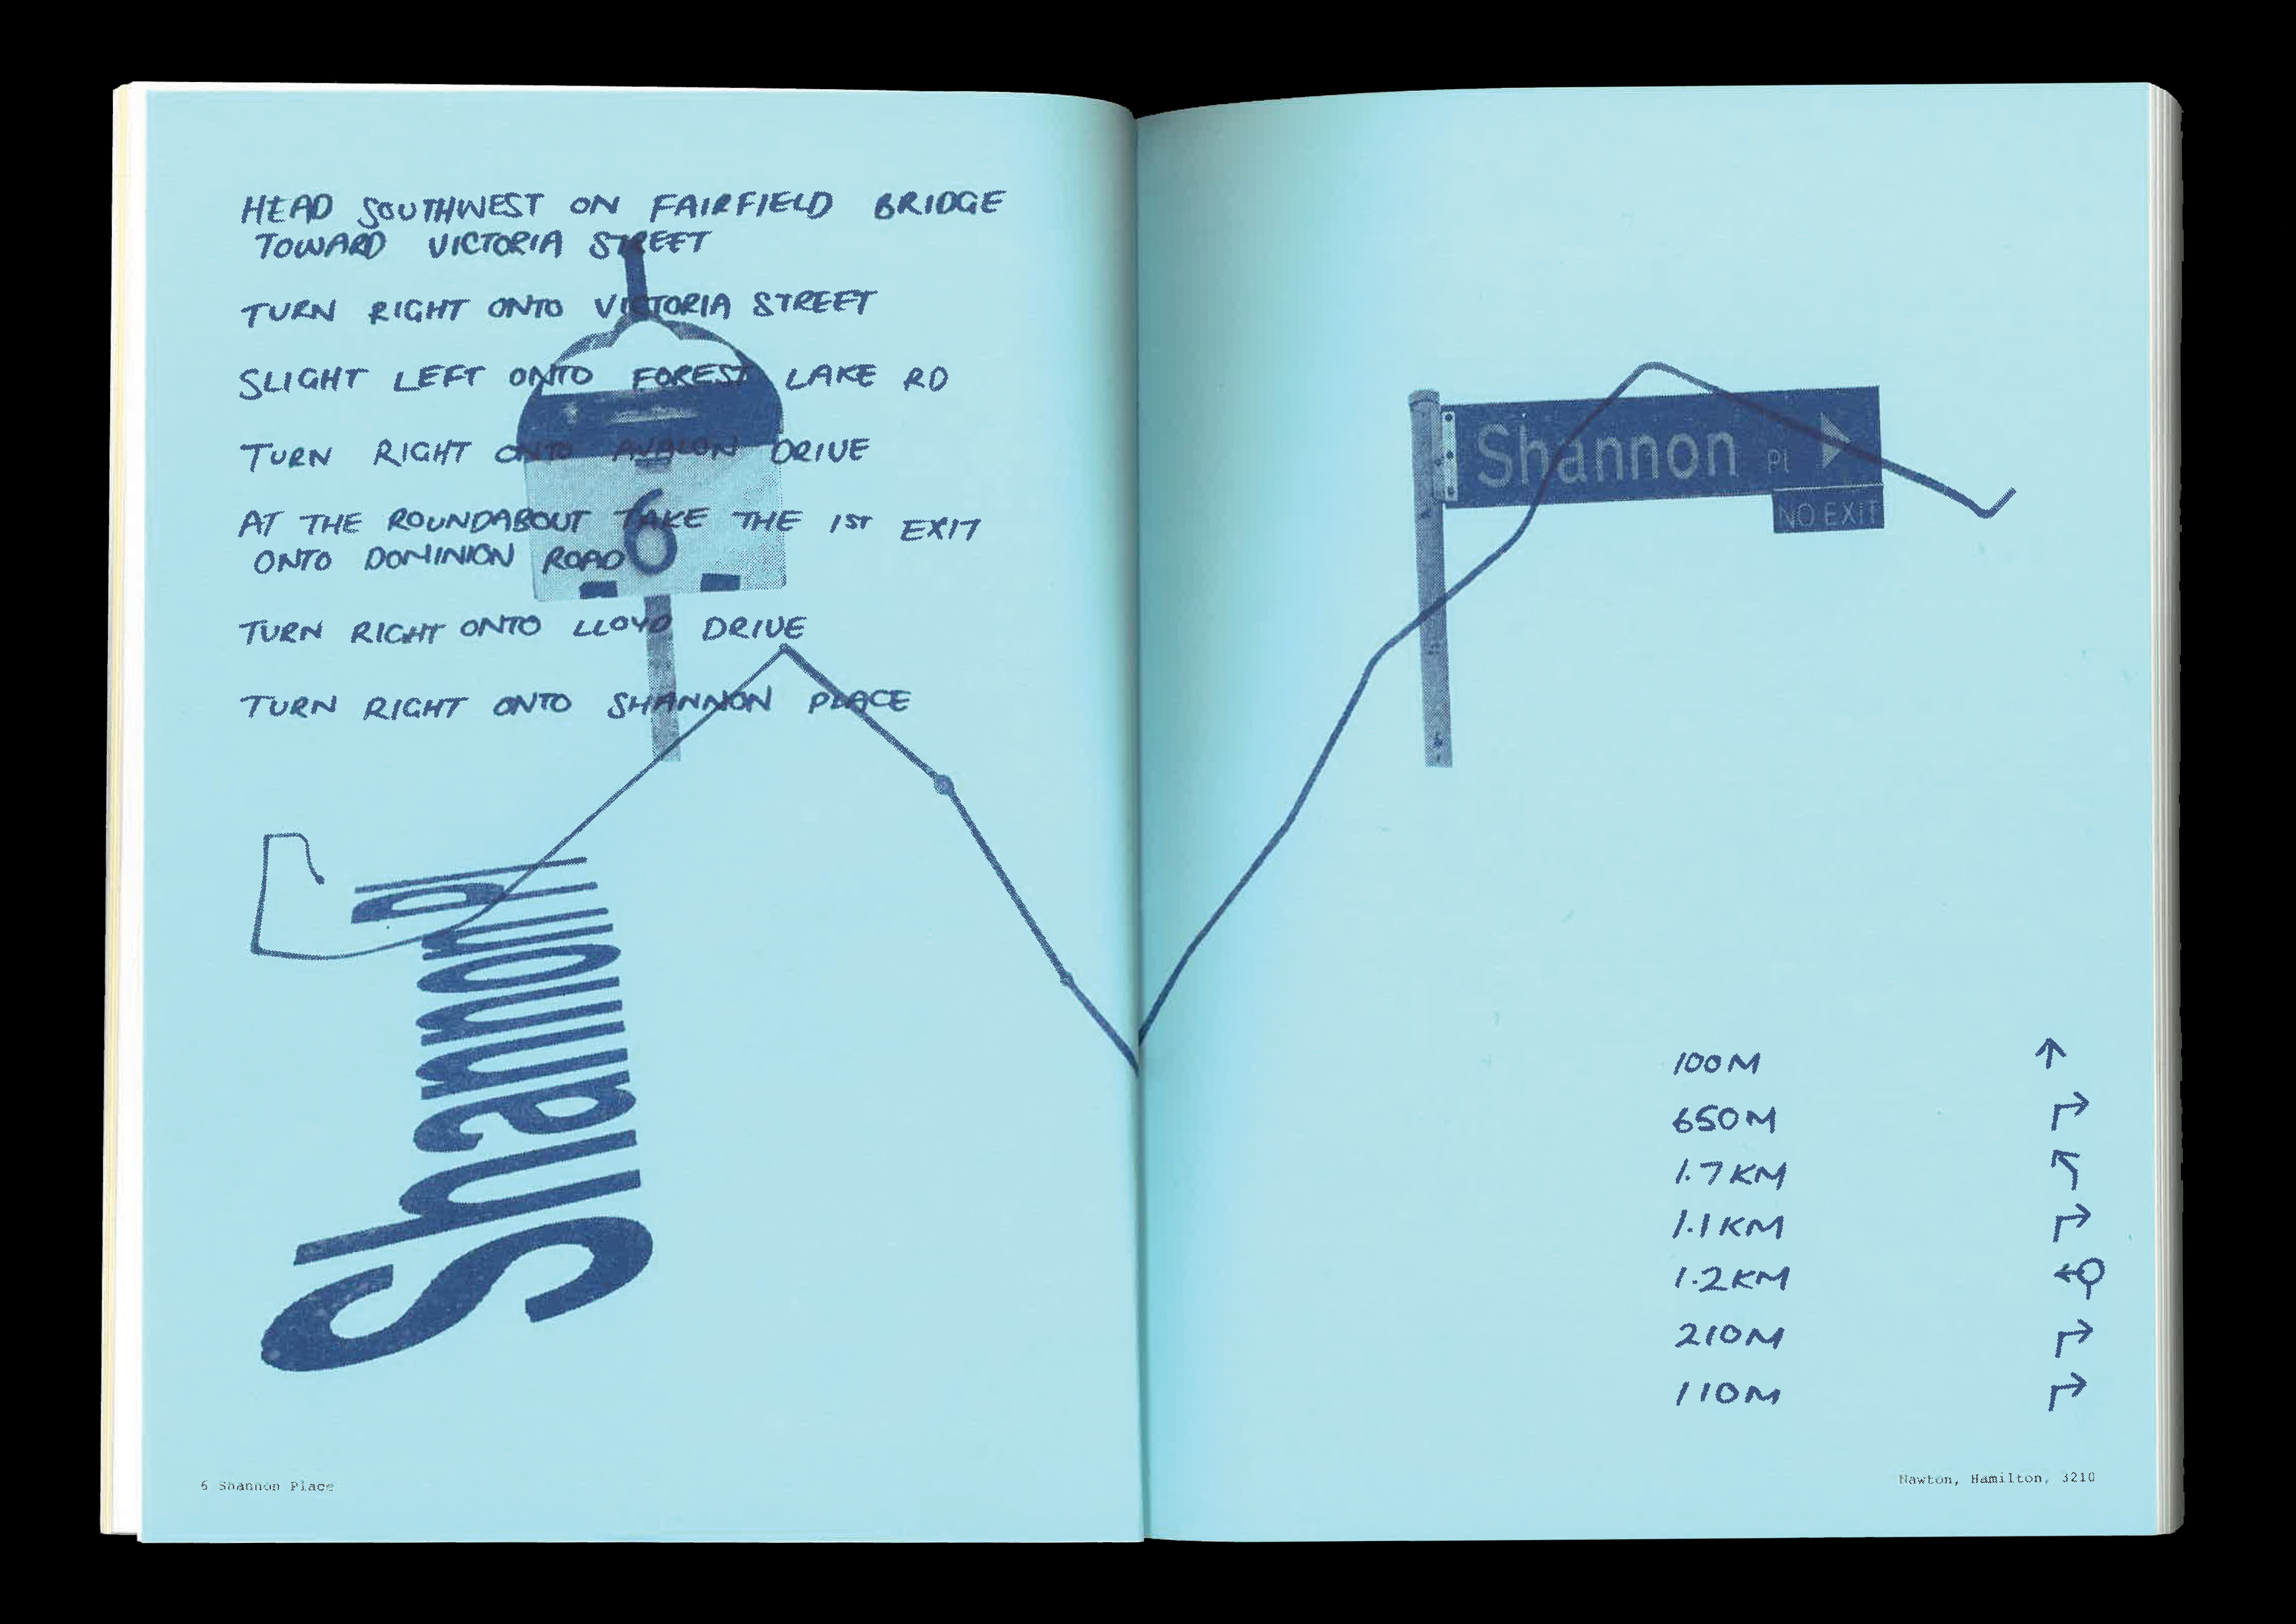 HEAD SOUTHWEST ON FAIRFIELD BRIDGE
TOWARD VICTORIA STREET
TURN RIGHT ONTO VICTORIA STREET
SLIGHT LEFT ONTO FOREST LAKE RD
TURN RIGHT ONTO AVALON DRIVE
AT THE ROUNDABOUT TAKE THE 1ST EXIT
ONTO DOMINION ROAD
TURN RIGHT ONTO LLOYD DRIVE
TURN RIGHT ONTO SHANNON PLACE
6
Shannon Pl
6 Shannon Place
Shannon Pl
NO EXIT
100M
650M
1.7KM
1.1KM
1.2KM
210M
110M
Nawton, Hamilton, 3210